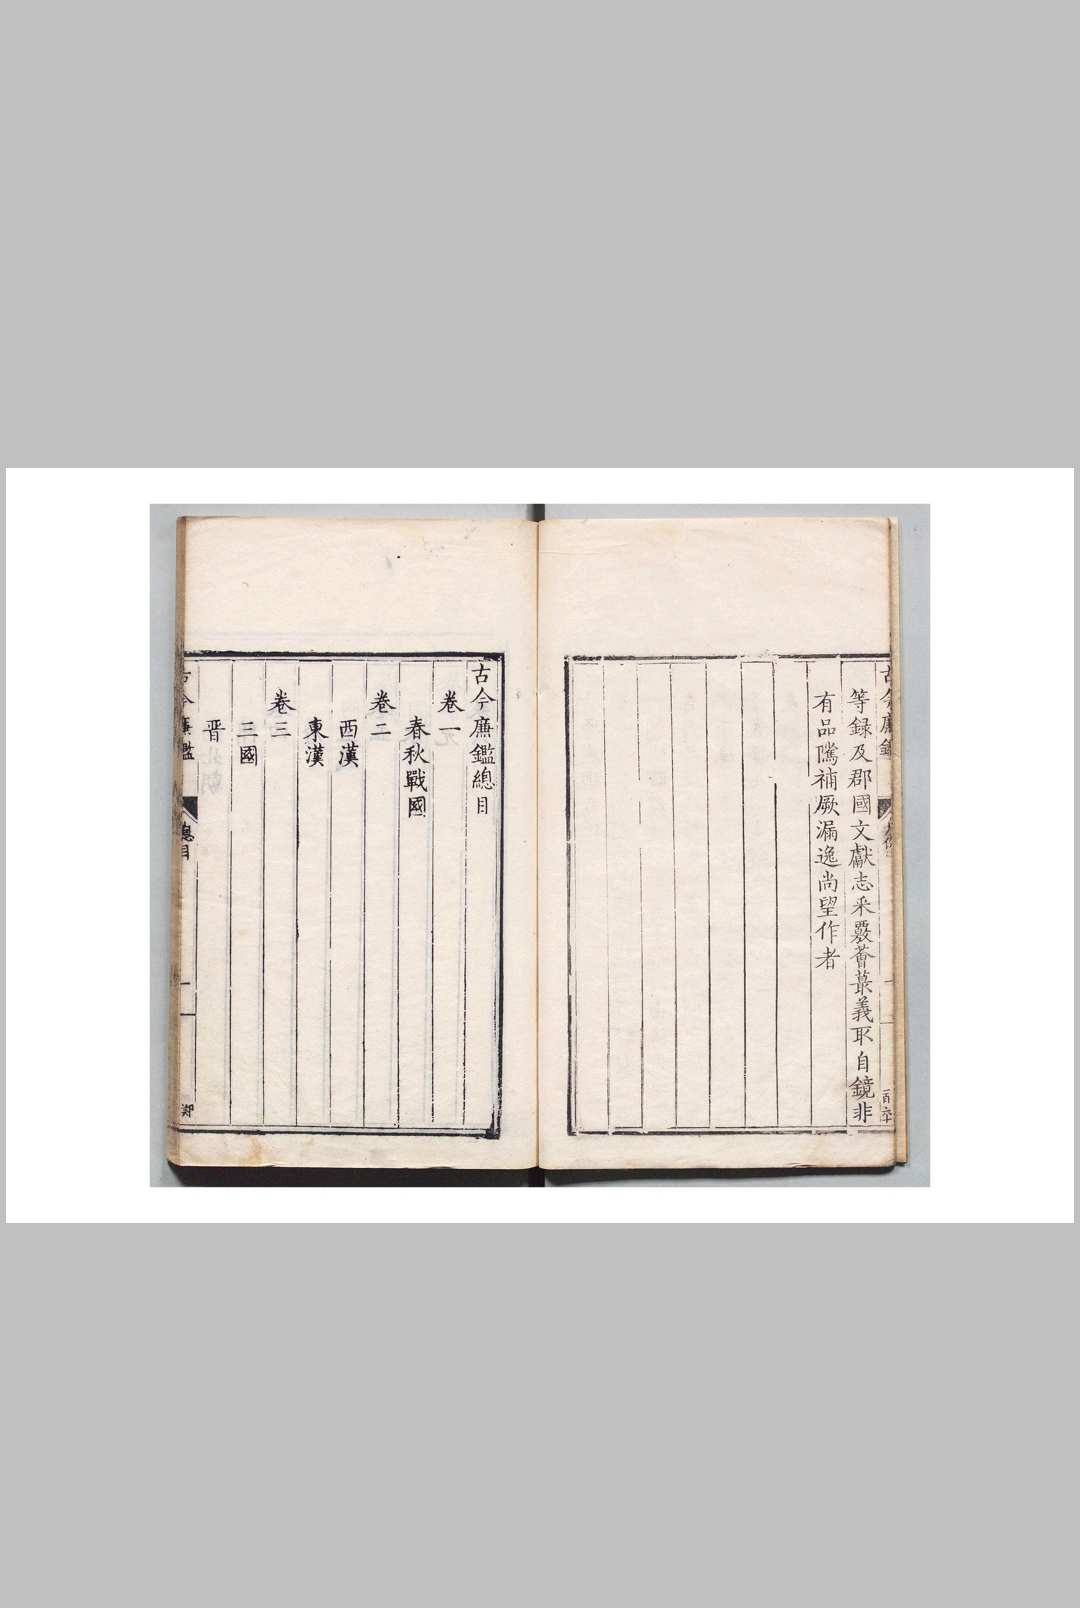 等録及郡國文獻志采覈薈蕞義取自鏡非
有品騭補厥漏逸尚望作者
古今廉鑑總目
卷一
春秋戰國
卷二
西漢
東漢
卷三
三國
晋
古今廉鑑
總目
一